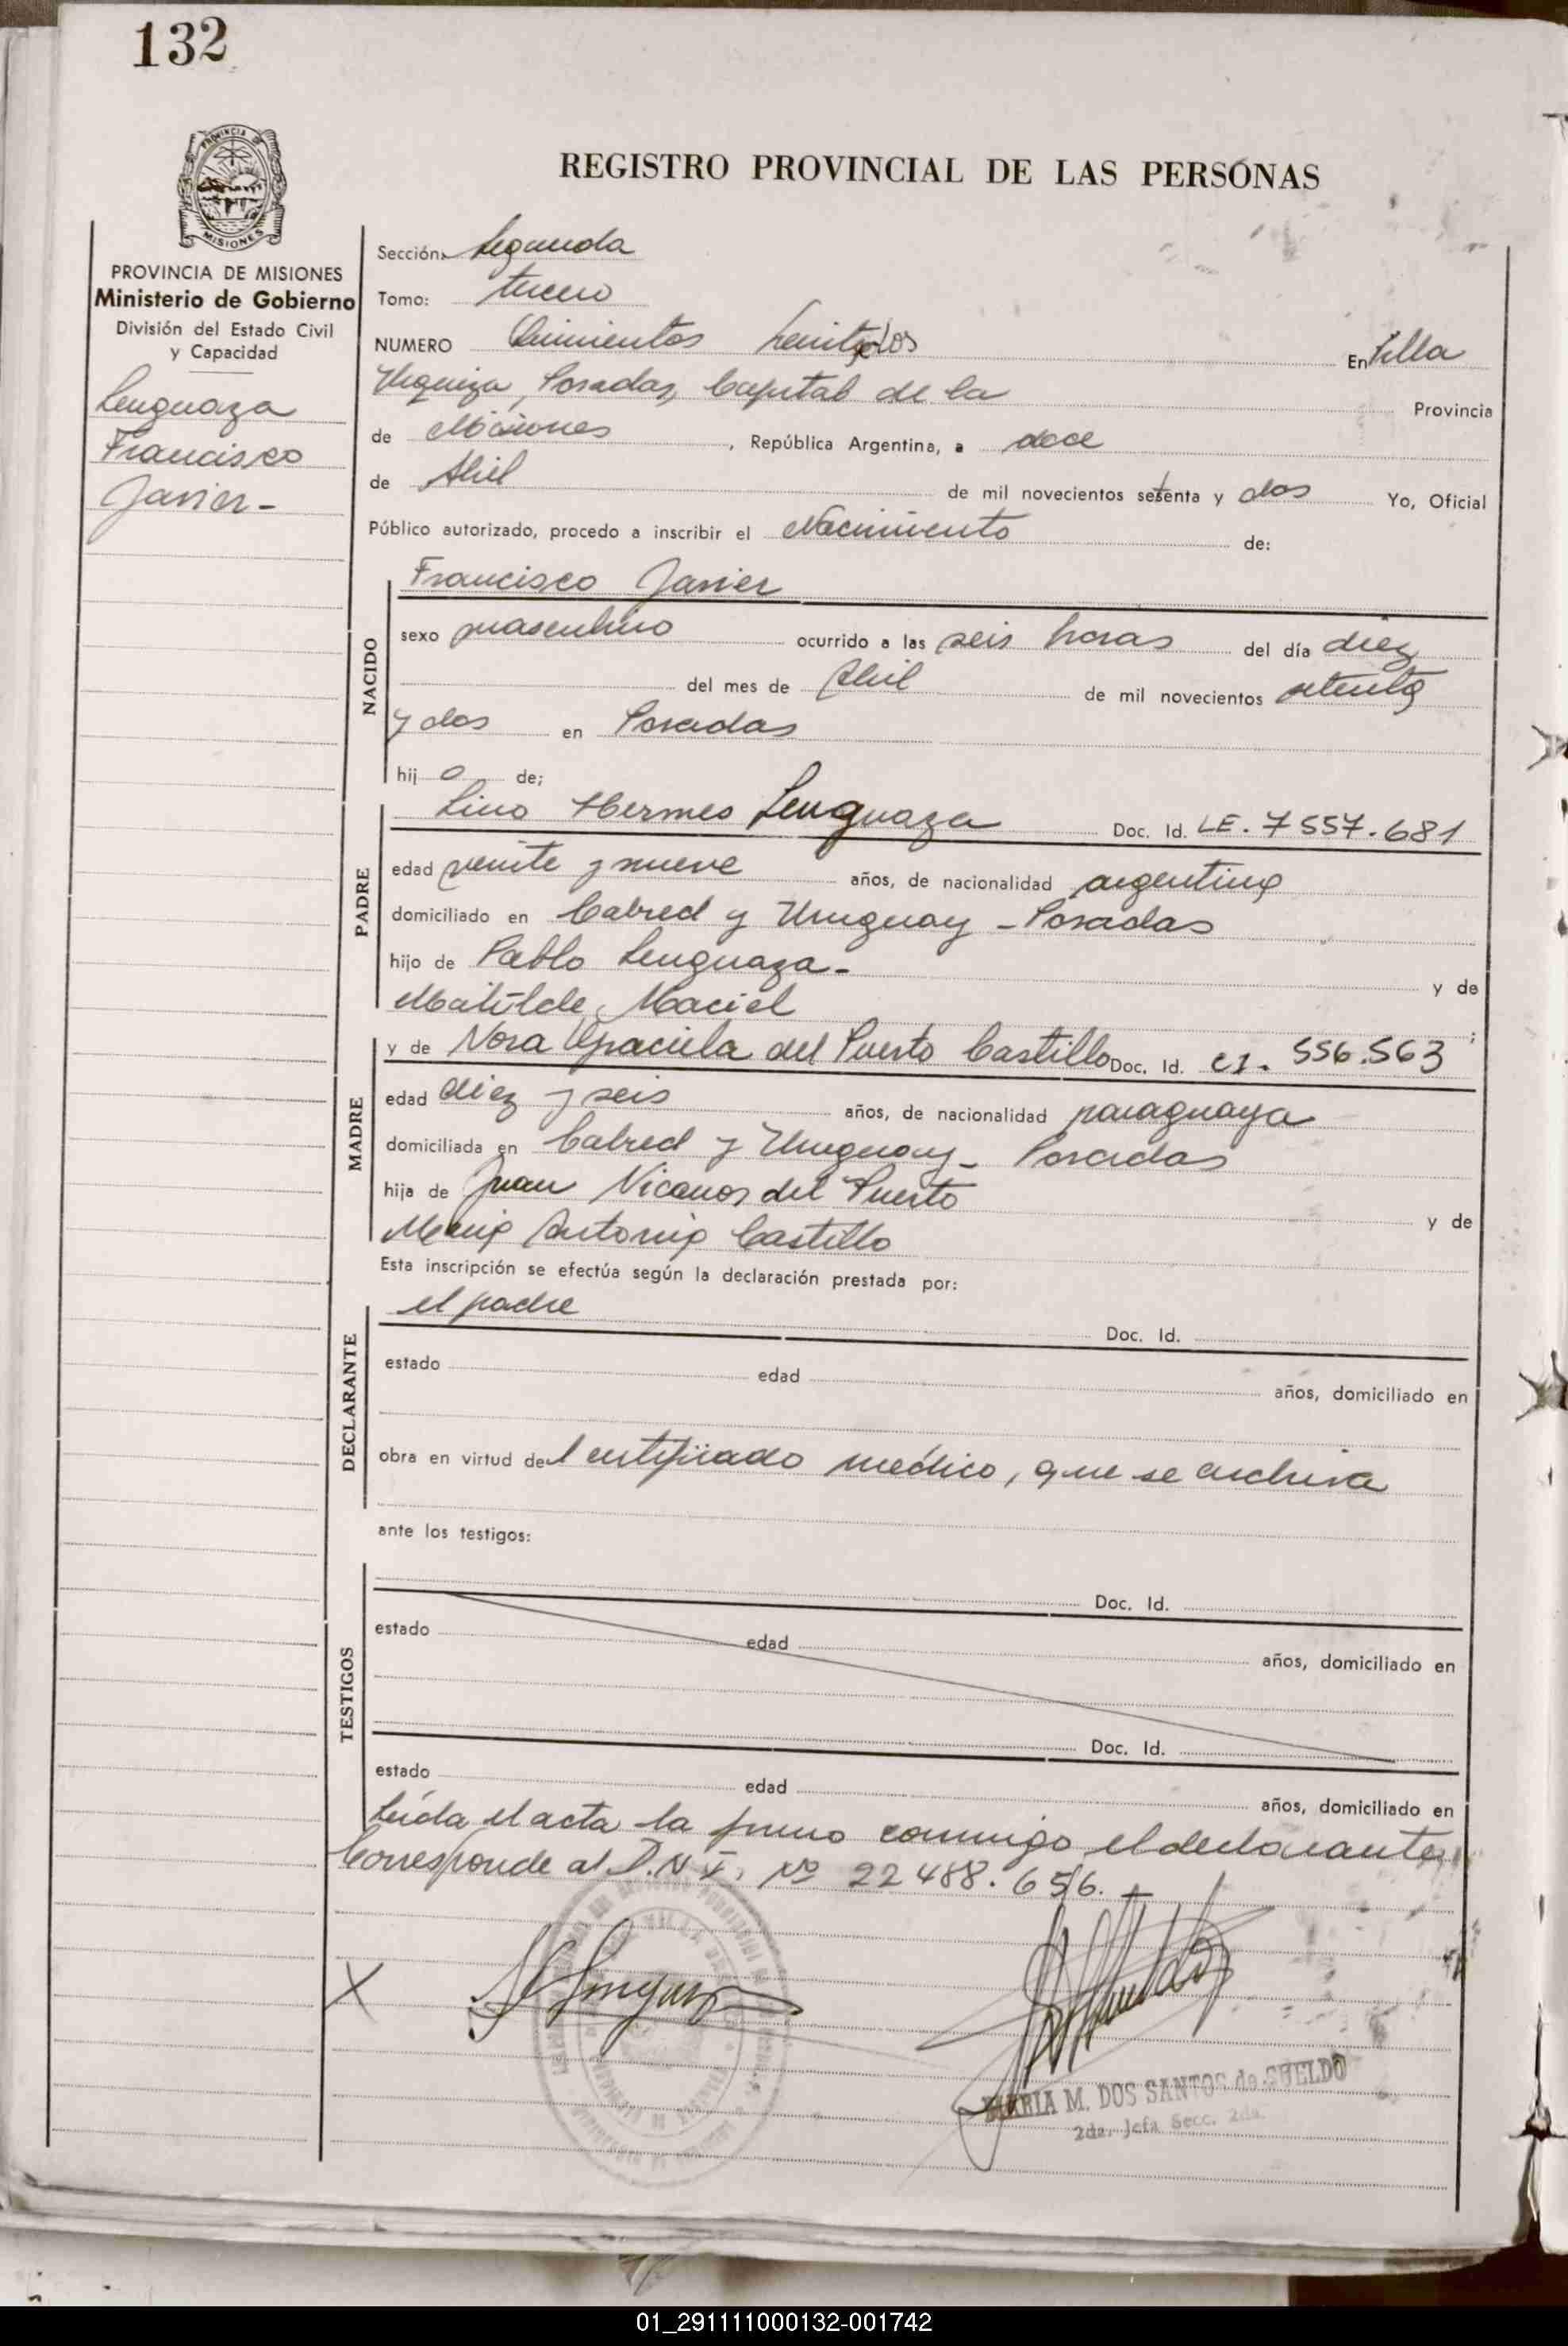 132
PROVINCIA DE
MISIONES
REGISTRO PROVINCIAL DE LAS PERSONAS
PROVINCIA DE MISIONES
Ministerio de Gobierno
División del Estado Civil
y Capacidad
Lenguaza
Francisco
Javier -
Sección: Segunda
Tomo: tercero
NUMERO Quinientos treinta y dos En Villa
Urquiza, Posadas, Capital de la Provincia
de Misiones, República Argentina, a doce
de Abril de mil novecientos setenta y dos Yo, Oficial
Público autorizado, procedo a inscribir el Nacimiento de:
NACIDO
Francisco Javier
sexo masculino ocurrido a las seis horas del día diez
del mes de Abril de mil novecientos setenta
y dos en Posadas
hijo de;
PADRE
Lino Hermes Lenguaza Doc. Id. LE. 7557.681
edad veinte y nueve años, de nacionalidad argentina
domiciliado en Cabred y Uruguay - Posadas
hijo de Pablo Lenguaza - y de
Matilde Maciel ;
MADRE
y de Nora Graciela del Puerto Castillo Doc. Id. CI. 556.563
edad diez y seis años, de nacionalidad paraguaya
domiciliada en Cabred y Uruguay - Posadas
hija de Juan Nicanor del Puerto y de
María Antonia Castillo
Esta inscripción se efectúa según la declaración prestada por:
DECLARANTE
el padre Doc. Id.
estado edad años, domiciliado en
obra en virtud del certificado medico, que se archiva
ante los testigos:
TESTIGOS
Doc. Id.
estado edad años, domiciliado en
Doc. Id.
estado edad años, domiciliado en
Leída el acta la firmo conmigo el declarante
Corresponde al D.N.I. Nº 22488.656. -
X
MARIA M. DOS SANTOS de SUELDO
2da. Jefa Secc. 2da.
01_291111000132-001742